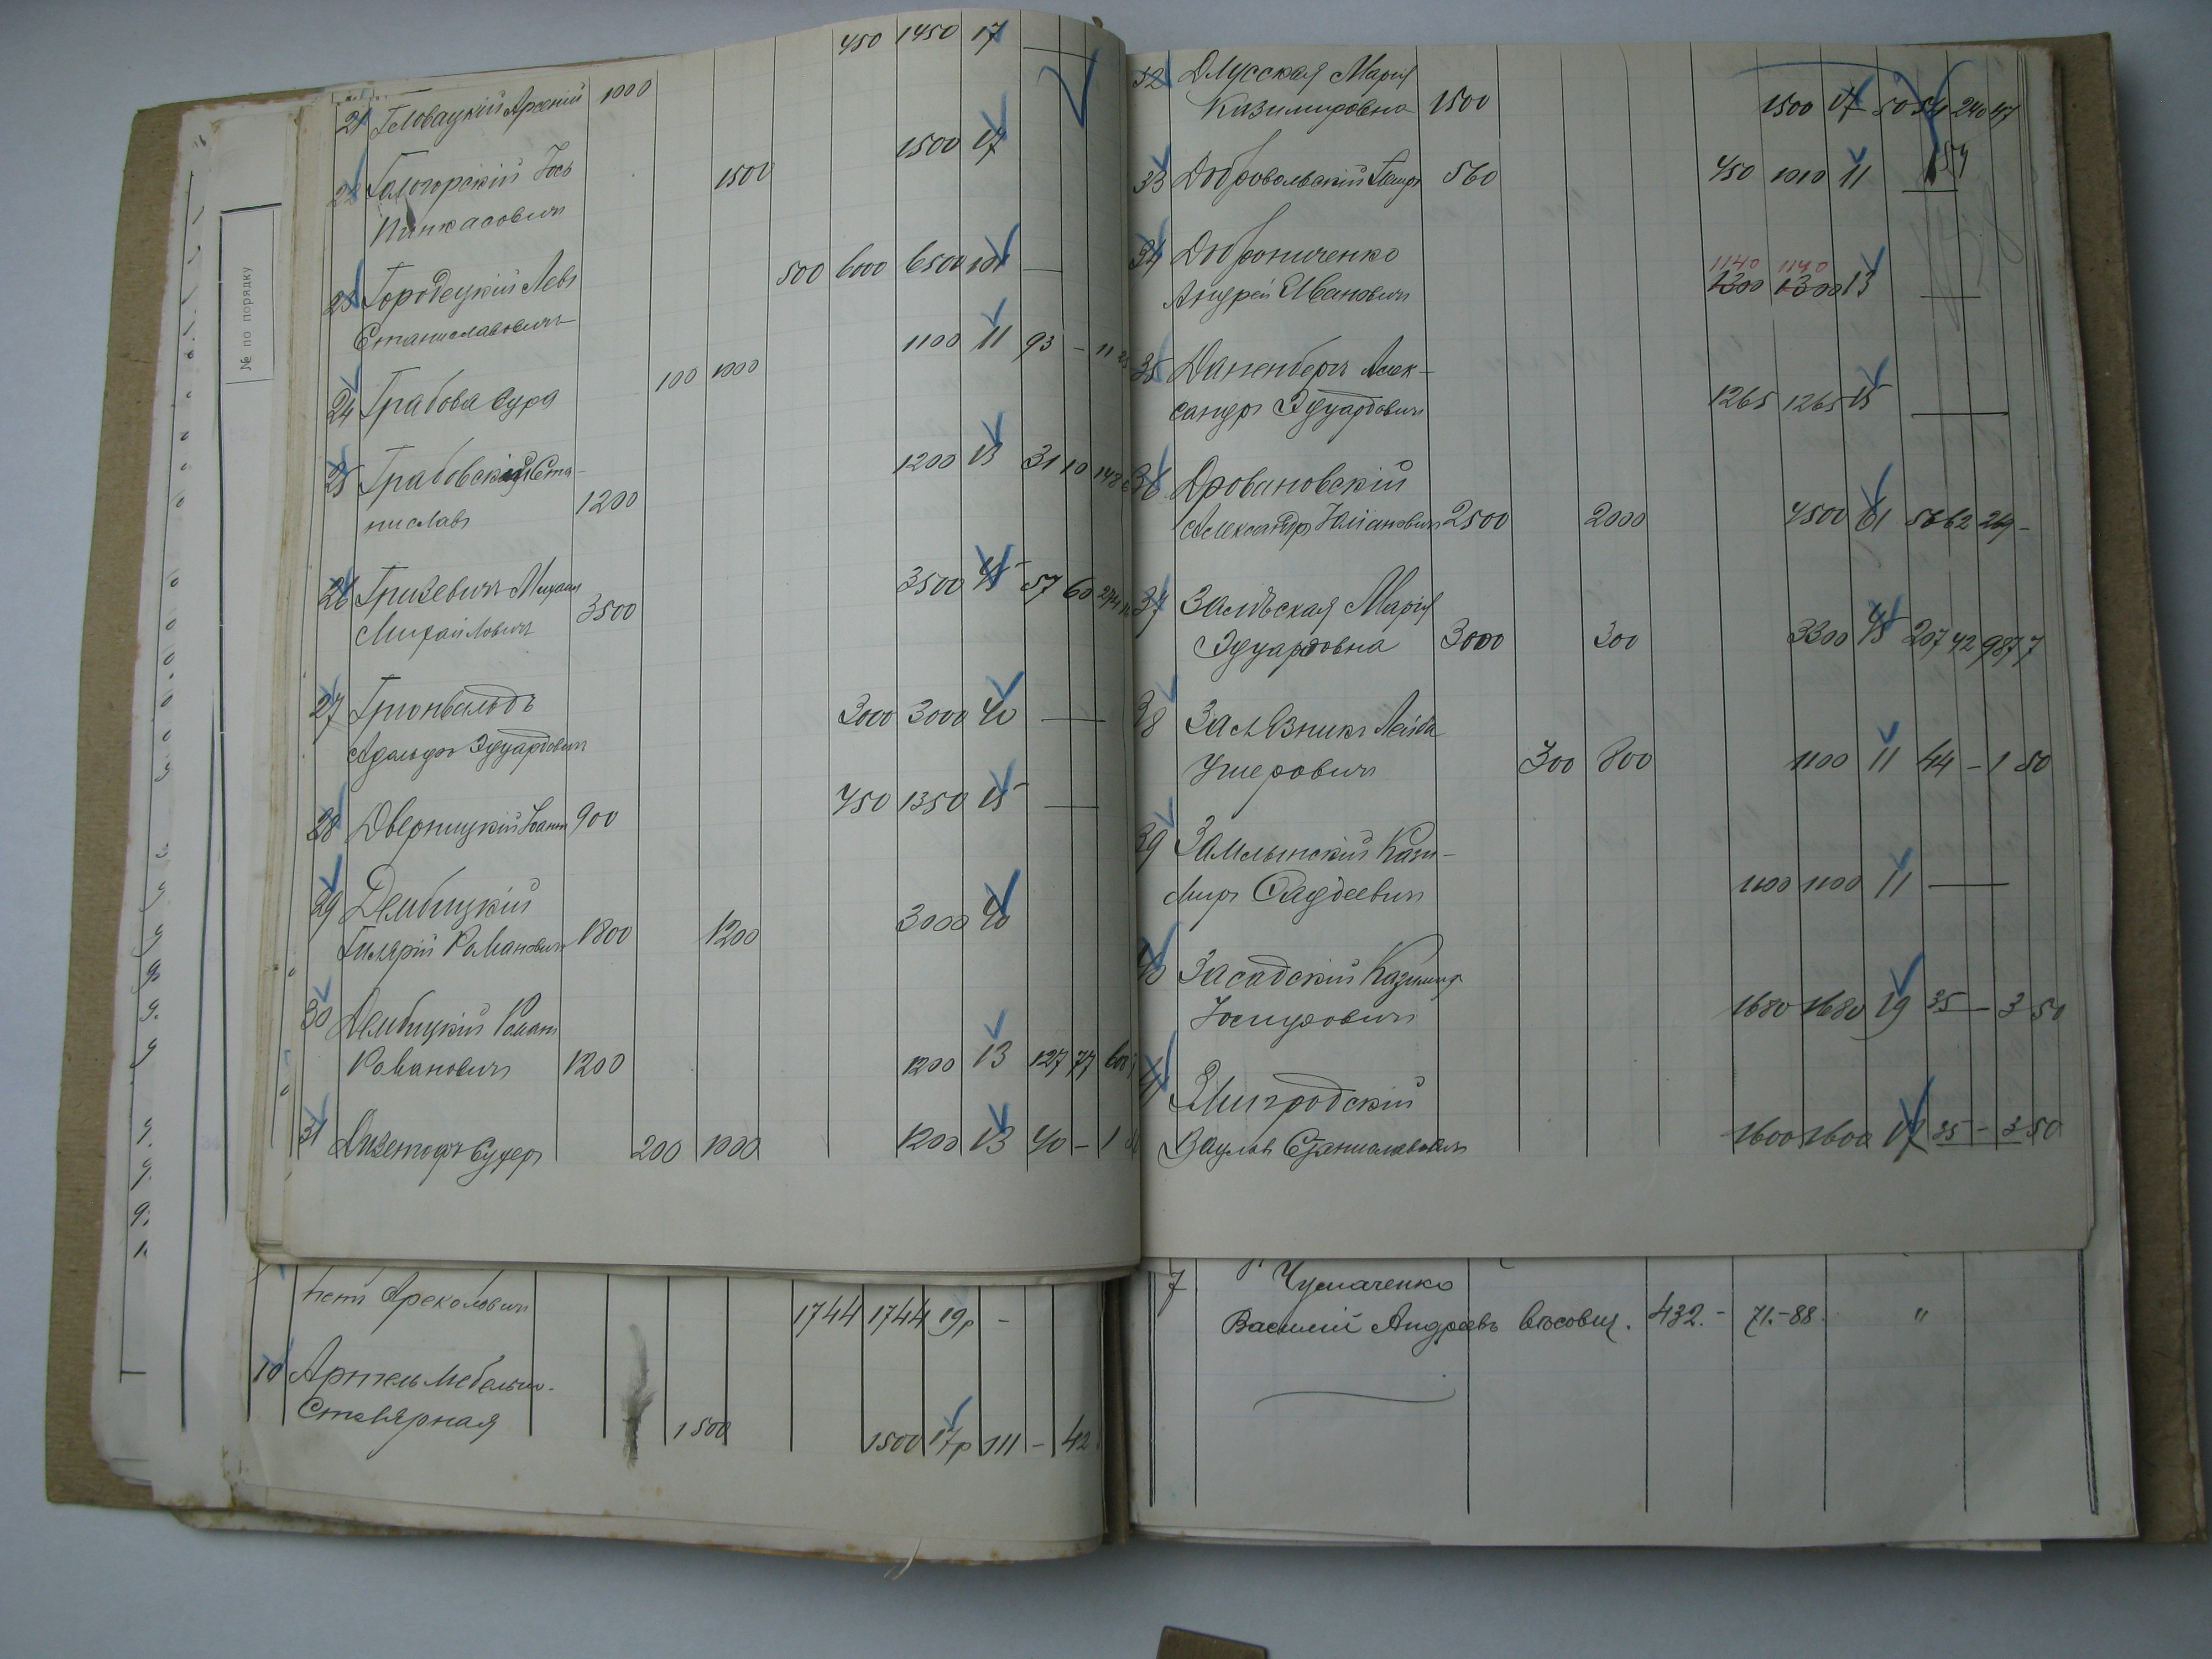 450 1450 17 —
21 Головацкій Арсеній 1000
1500 17
22 Галогорскій Іось 1500
Пинкасовичъ
500 6000 6500 —
23 Городецкій Левъ
Станиславовичъ
1100 11 93 - 11
24 Грабова Сура 100 1000
1200 13 31 10 148
25 Грабовскій Ста-
ниславъ 1200
3500 45 57 60 274
26 Гризевичъ Михаил
Михайловичъ 3500
27 Грюнвальдъ 3000 3000 40 —
Адольфъ Эдуардович
450 1350 15 —
28 Дверницкій Іоаннъ 900
29 Дембицкій 3000 40
Гилярій Романович 1800 1200
30 Дембицкій Романъ
Романовичъ 1200 1200 13 127 77
31 Дизенгофъ Сухеръ 200 1000 1200 13 40 - 1
№ по порядку
нетъ
1744 1744 19р -
10 Артель Мебельно-
Столярная
1500 1500 17р 111 - 42
32 Длусская Марія
Казимировна 1500 1500 17 50 54 240 47
154
33 Добровольскій Петръ 560 450 1010 11 —
34 Доброниченко 1140 1140
Андрей Ивановичъ 1300 1300 13 —
35 Даненбергъ Алек-
сандръ Эдуардович 1265 1265 15 —
36 Дровановскій
Александръ Юліанович 2500 2000 4500 61 56 62 264 -
37 Залѣская Марія
Эдуардовна 3000 300 3300 45 207 42 987 7
38 Залѣзникъ Лейба
Ушеровичъ 300 800 1100 11 44 - 1 80
39 Замлынскій Кази-
миръ Фаддеевич 1100 1100 11 —
40 Засадскій Казимир
Іосифовичъ 1680 1680 19 35 - 3 50
41 Змигродскій
Вацлавъ Станиславович 1600 1600 17 35 - 3 50
7 Чумаченко
Василій Андреевъ вѣсовщ. 432.- 71.-88. "